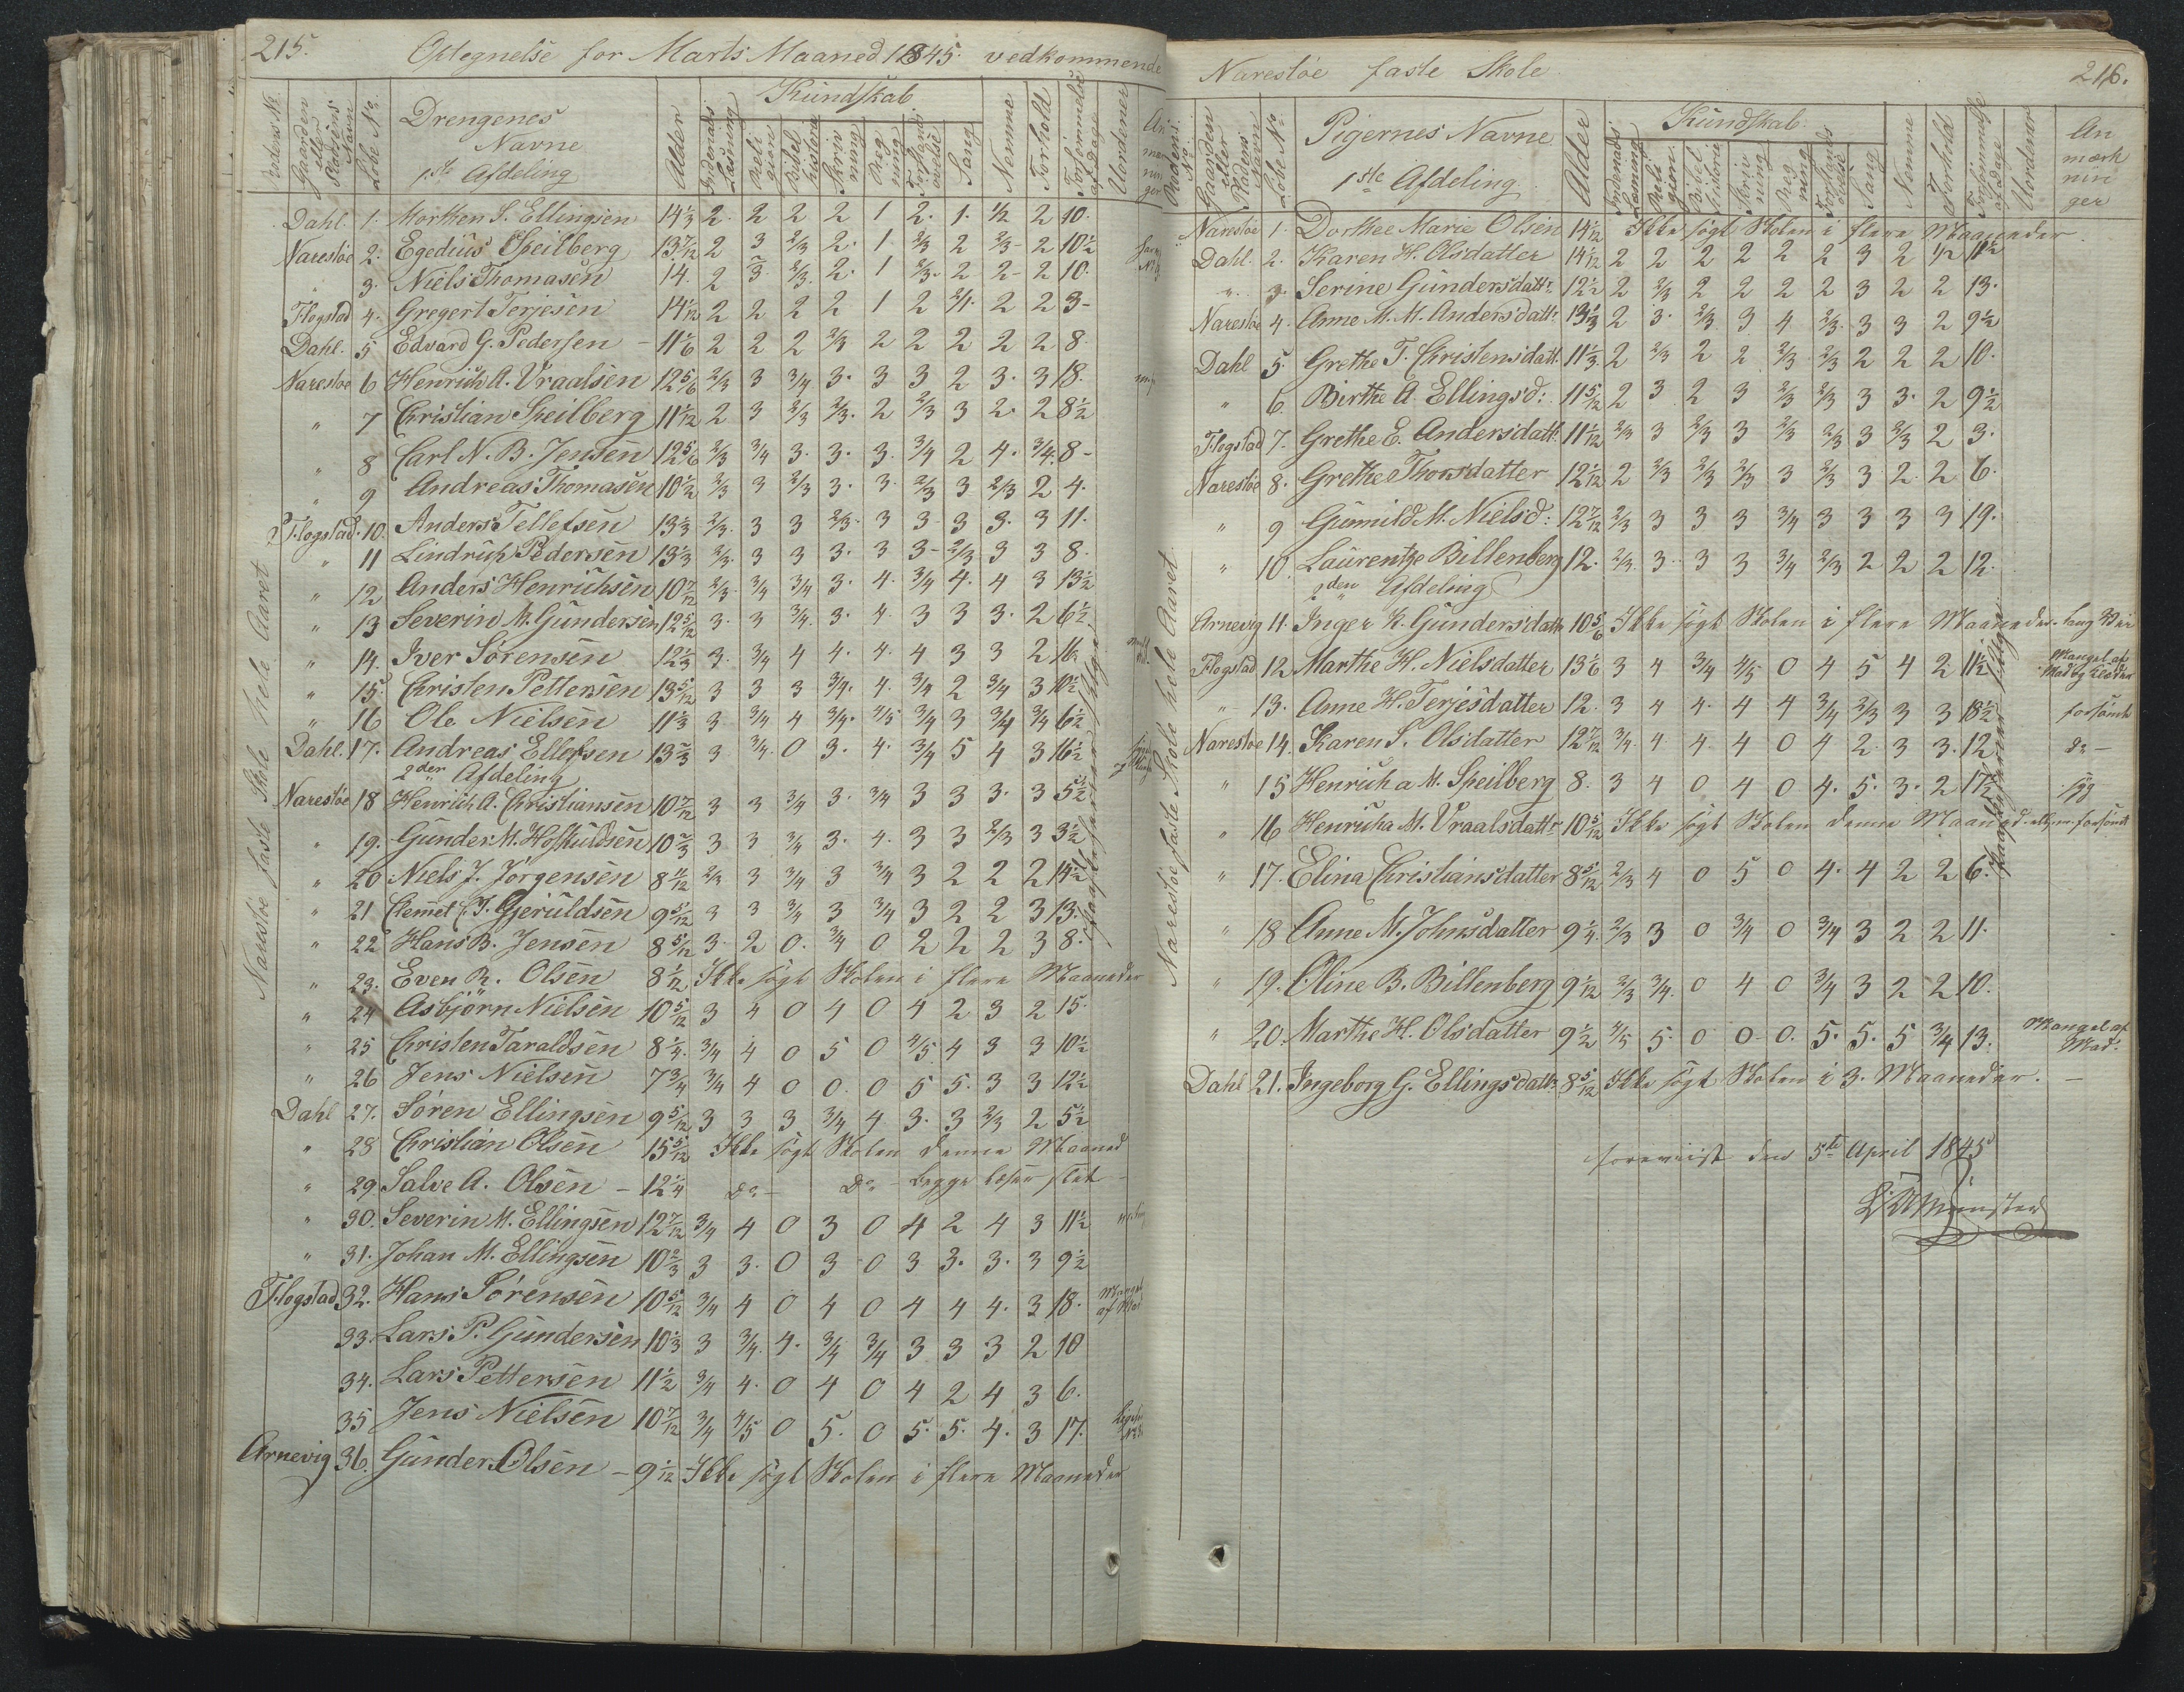 215.
Optegnelse for Marts Maaned 1845 vedkommende
Gaarden eller Pladsens Navn
Løbe No
Drengenes Navne
1ste Afdeling
Alder
Kundskab
Indenads Læsning
Religion
Bibelhistorie
Skrivning
Regning
Forstandsøvelse
Sang
Nemme
Forhold
Forsømmelse af Dage
Uordener
Anmærkninger
Narestøe faste Skole hele Aaret
Dahl 1. Morthen S. Ellingsen 14 1/3 2. 2 2 2 1 2. 1. 1/2 2 10.
Narestøe 2. Egedius Speilberg 13 7/12 2 3 2/3 2. 1 2/3 2 2/3 2 10 1/2
" 3. Niels Thomasen 14. 2 3 2/3 2. 1 2/3 2 2 2 10.
Flogstad 4. Gregert Terjesen 14 1/12 2 2 2 2 1 2 2/1 2 2 3
Dahl. 5 Edvard G. Pedersen 11 1/6 2 2 2 2/3 2 2 2 2 2 8.
Narestøe 6 Henrich A. Vraalsen 12 5/6 2/3 3 3/4 3. 3 3 2 3. 3 18.
" 7 Christian Speilberg 11 1/12 2 3 2/3 2/3. 2 2/3 3 2. 2 8 1/2
" 8 Carl N. B. Jensen 12 5/6 2/3 3/4 3. 3. 3. 3/4 2 4. 3/4. 8
" 9 Andreas Thomasen 10 1/2 2/3 3 2/3 3. 3. 2/3 3 2/3 2 4.
Flogstad. 10. Anders Tellefsen 13 1/3 2/3. 3 3 2/3. 3 3 3 3. 3 11.
" 11 Lindrich Pedersen 13 1/3 2/3. 3 3 3. 3 3 2/3 3 3 8.
" 12 Anders Henrichsen 10 7/12 2/3 3/4 3/4 3. 4. 3/4 4. 4 3 13 1/2
" 13 Severin M. Gundersen 12 5/12 3. 3 3/4. 3. 4. 3 3 3. 2 6 1/2
" 14. Iver Sørensen 12 1/3 3. 3/4 4 4. 4. 4 3 3 2 16.
" 15. Christen Pettersen 13 5/12 3 3 3 3/4. 4. 3/4 2 3/4 3 10 1/2
" 16 Ole Nielsen 11 1/3 3 3/4 4 3/4. 4/5 3/4 3 3/4 3/4 6 1/2
Dahl. 17. Andreas Ellefsen 13 2/3 3 3/4. 0 3. 4. 3/4 5 4 3 16 1/2
2den Afdeling
Narestøe 18 Henrich A. Christiansen 10 7/12 3 3 3/4 3. 3/4 3 3 3. 3 5 1/2
" 19. Gunder M. Hofskuldsen 10 2/3 3 3 3/4 3. 4. 3 3 2/3 3 3 1/2
" 20 Niels J. Jørgensen 8 11/12 2/3 3 3/4 3 3/4 3 2 2 2 14 1/2
" 21 Clemet C. J. Gjeruldsen 9 5/12 3 3 3/4 3 3/4 3 2 2 3 13.
" 22 Hans B. Jensen 8 5/12 3. 2 0. 3/4 0 2 2 2 3 8.
" 23. Even R. Olsen 8 1/12 Ikke søgt Skolen i flere Maaneder
" 24 Asbjørn Nielsen 10 5/12 3 4 0 4 0 4 2 3 2 15.
" 25 Christen Taraldsen 8 1/4. 3/4 4 0 5 0 4/5 4 3 3 10 1/2
" 26 Jens Nielsen 7 3/4 3/4 4 0 0. 0 5 5. 3 3 12 1/2
Dahl 27. Søren Ellingsen 9 5/12 3 3 3 3/4 4 3. 3 2/3 2 5 1/2
" 28 Christian Olsen 15 5/12 Ikke søgt Skolen denne Maaned
" 29 Salve A. Olsen 12 1/4 Do Do Begge læser slet
" 30. Severin M. Ellingsen 12 7/12 3/4 4 0 3 0 4 2 4 3 11 1/2
" 31. Johan M. Ellingsen 10 2/3 3 3. 0 3 0 3 3. 3. 3 9 1/2
Flogstad 32. Hans Sørensen 10 5/12 3/4 4 0 4 0 4 4 4. 3 18. Mangel af Mad
33. Lars P. Gundersen 10 1/3 3 3/4. 4. 3/4 3/4 3 3 3 2 10
34. Lars Pettersen 11 1/2 3/4 4. 0 4 0 4 2 4 3 6.
35 Jens Nielsen 10 7/12 3/4 4/5 0 5. 0 5. 5. 4. 3 17.
Arnevig 36. Gunder Olsen 9 1/12 Ikke søgt Skolen i flere Maaneder
Narestøe faste Skole
216.
Rodens No
Gaarden eller Pladens Navn
Løbe No
Pigernes Navne
1ste Afdeling
Alder
Kundskab
Indenads Læsning
Religion
Bibelhistorie
Skrivning
Regning
Forstandsøvelse
Sang
Nemme
Forhold
Forsømmelse af Dage
Uordener
Anmærkninger
Narestøe faste Skole hele Aaret
Narestøe 1. Dorthee Marie Olsen 14 1/12 Ikke søgt Skolen i flere Maaneder.
Dahl. 2. Karen H. Olsdatter 14 1/12 2 2 2 2 2 2 3 2 1/2 11 1/2
" 3. Serine Gundersdattr. 12 1/2 2 2/3 2 2 2 2 3 2 2 13.
Narestøe 4. Anne M. M. Andersdattr 13 1/3 2 3. 2/3 3 4 2/3. 3 3 2 9 1/2
Dahl 5. Grethe T. Christensdatt. 11 1/3. 2 2/3 2 2 2/3 2/3 2 2 2 10.
" 6. Birthe A. Ellingsd: 11 5/12 2 3 2 3 2/3 2/3 3 3. 2 9 1/2
Flogstad 7. Grethe E. Andersdatt. 11 1/12 2/3 3 2/3 3 2/3 2/3 3 2/3 2 3.
Narestøe 8. Grethe Thorsdatter 12 1/12 2 2/3 2/3 2/3 3 2/3 3 2. 2 6.
" 9 Gunnild M. Nielsd: 12 7/12 2/3 3 3 3 3/4 3 3 3 3 19.
" 10. Laurentze Billenberg 12. 2/3. 3 3 3 3/4 2/3 2 2 2 12.
2den Afdeling
Arnevig 11. Inger K. Gundersdattr 10 5/6 Ikke søgt Skolen i flere Maaneder. lang Vei
Flogstad 12 Marthe H. Nielsdatter 13 1/6 3 4 3/4 4/5 0 4 5 4 2 11 1/2 Mangel af Mad og Klæder
" 13. Anne H. Terjesdatter 12. 3 4 4. 4 4 3/4 2/3 3 3 18 1/2 forsømt
Narestøe 14. Karen S. Olsdatter 12 7/12 3/4. 4 4. 4 0 4 2. 3 3. 12 Do
" 15 Henrich a M. Speilberg 8. 3 4 0 4 0 4. 5. 3. 2 17 1/2 syg
" 16 Henricha M. Vraalsdattr 10 5/12 Ikke søgt Skolen denne Maaned
" 17. Elina Christiansdatter 8 5/12 2/3 4 0 5 0 4. 4 2 2 6.
" 18 Anne M. Johnsdatter 9 1/4. 2/3 3 0 3/4 0 3/4 3 2 2 11.
" 19. Oline B. Billenberg 9 1/12 2/3 3/4. 0 4 0 3/4 3 2 2 10.
" 20. Marthe H. Olsdatter 9 1/2 4/5 5. 0 0 0. 5. 5. 5 3/4 13. Mangel af Mad.
Dahl 21. Ingeborg G. Ellingsdattr 8 5/12 Ikke søgt Skolen i 3. Maaneder.
foreviist den 5te April 1845